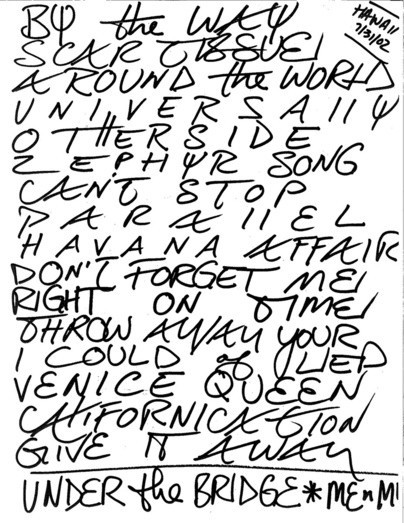 HAWAII
7/31/02
BY the WAY
SCAR TISSUE
AROUND the WORLD
UNIVERSAllY
OTHERSIDE
ZEPHYR SONG
CAN'T STOP
PARAllEL
HAVANA AFFAIR
DON'T FORGET ME
RIGHT ON TIME
THROW AWAY YOUR
I COULD of LIED
VENICE QUEEN
CAlIFORNICATION
GIVE IT AWAY
UNDER the BRIDGE * ME n M